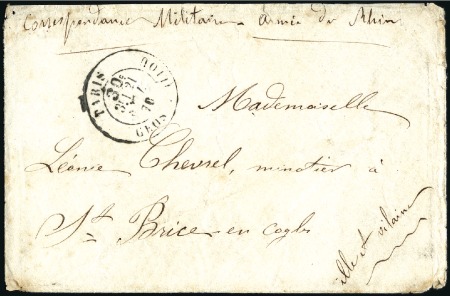 Correspondance Militaire - Armée du Rhin
PARIS
30
70
Mademoiselle
Léonie Chevrel, minotier à
St. Brice en cogles
ille et vilaine